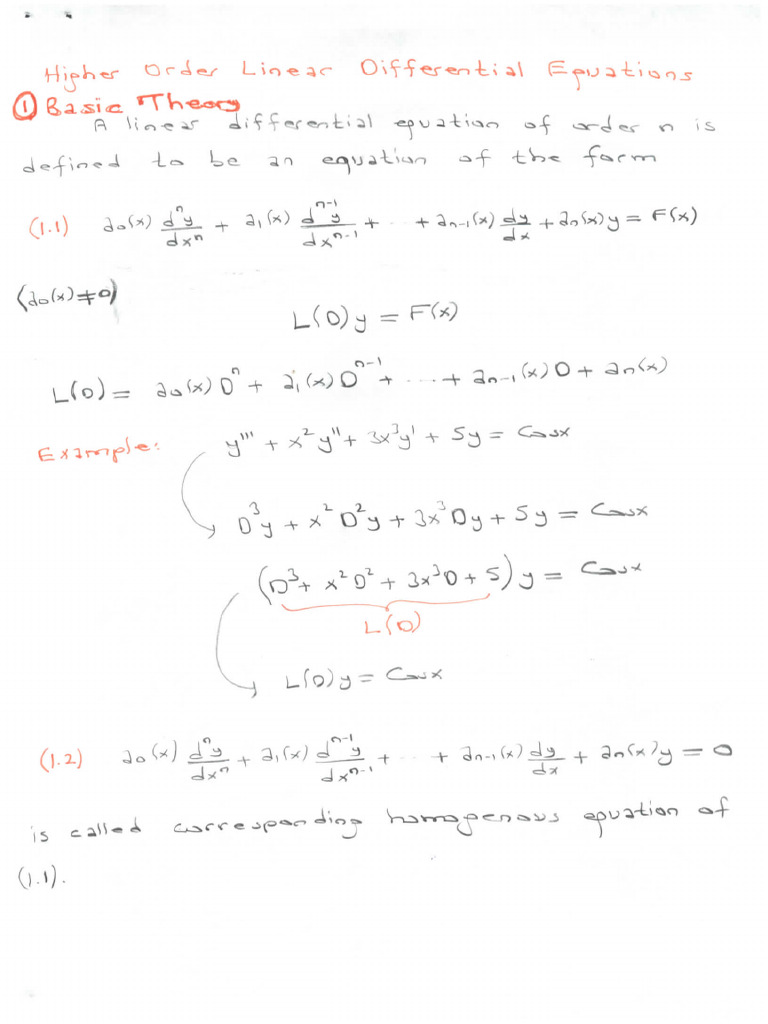 Higher Order Linear Differential Equations
① Basic Theory
A linear differential equation of order n is
defined to be an equation of the form
(1.1) a₀(x) dⁿy/dxⁿ + a₁(x) dⁿ⁻¹y/dxⁿ⁻¹ + ... + aₙ₋₁(x) dy/dx + aₙ(x)y = F(x)
(a₀(x) ≠ 0)
L(D)y = F(x)
L(D) = a₀(x)Dⁿ + a₁(x)Dⁿ⁻¹ + ... + aₙ₋₁(x)D + aₙ(x)
Example: y''' + x²y'' + 3x³y' + 5y = Cosx
D³y + x²D²y + 3x³Dy + 5y = Cosx
(D³ + x²D² + 3x³D + 5)y = Cosx
L(D)
L(D)y = Cosx
(1.2) a₀(x) dⁿy/dxⁿ + a₁(x) dⁿ⁻¹y/dxⁿ⁻¹ + ... + aₙ₋₁(x) dy/dx + aₙ(x)y = 0
is called corresponding homogenous equation of
(1.1).